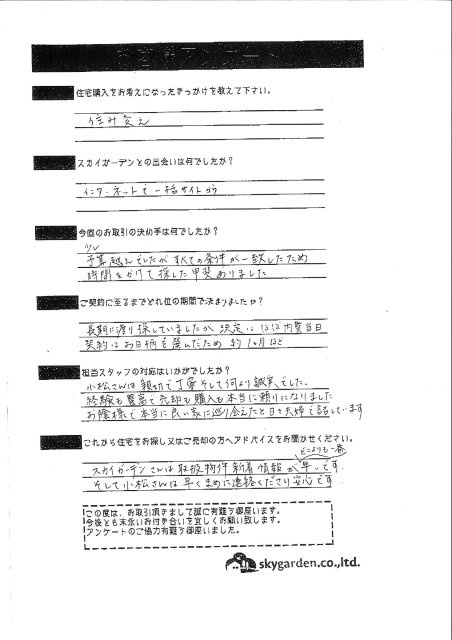 住宅購入をお考えになったきっかけを教えて下さい。
住み変え
スカイガーデンとの出会いは何でしたか?
インターネットで一括サイトから
今回のお取引の決め手は何でしたか?
少し
予算越えでしたがすべての条件が一致したため
時間をかけて探した甲斐ありました
ご契約に至るまでどれ位の期間で決まりましたか?
長期に渡り探していましたが 決定は ほぼ内覧当日
契約は お日柄を選んだため 約1ヵ月ほど
担当スタッフの対応はいかがでしたか?
小松さんは 親切で丁寧 そして何より誠実でした。
経験も豊富で売却も購入も本当に頼りになりました
お陰様で本当に良い家に巡り会えたと日々夫婦で話しています
これから住宅をお探し又はご売却の方へアドバイスをお聞かせください。
どこよりも一番
スカイガーデンさんは 取扱物件 新着情報が早いです
そして小松さんは 早くまめに連絡くださり安心です
この度は、お取引頂きまして誠に有難う御座います。
今後とも末永いお付き合いを宜しくお願い致します。
アンケートのご協力有難う御座いました。
skygarden.co.,ltd.